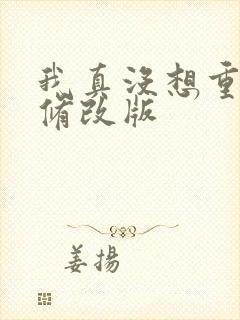 我真没想重
修改版
姜扬